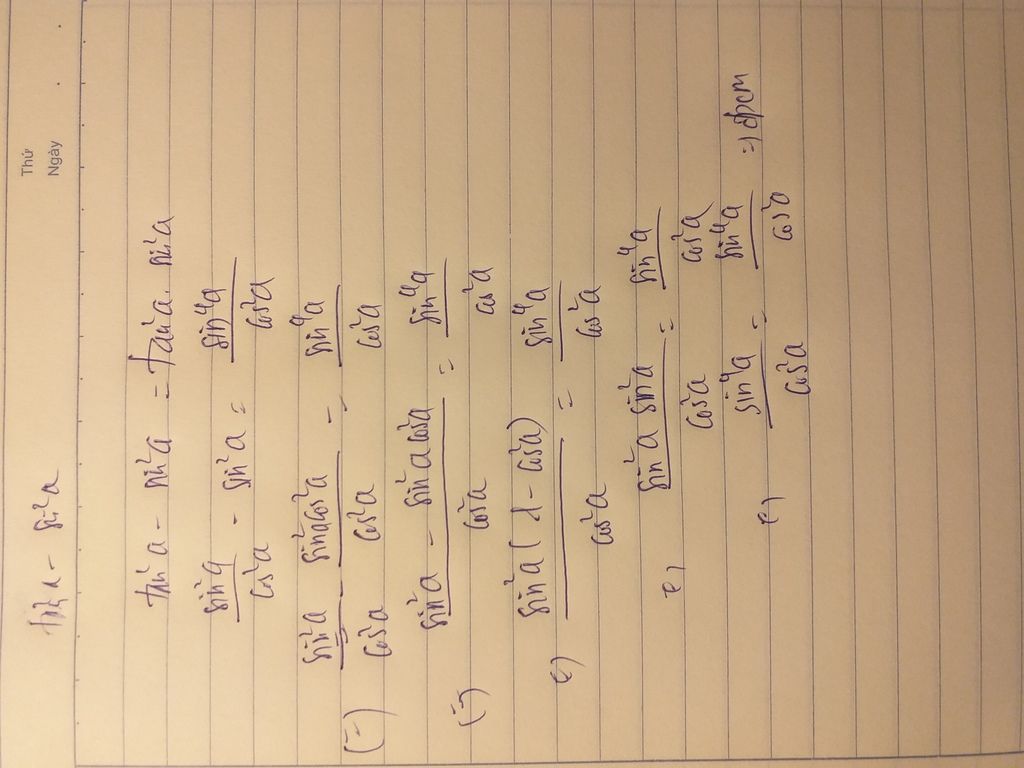 Thứ
Ngày
tan²a - sin²a
tan²a - sin²a = tan²a . sin²a
sin²a/cos²a - sin²a = sin⁴a/cos²a
(=) sin²a/cos²a - sin²a cos²a/cos²a = sin⁴a/cos²a
(=) (sin²a - sin²a cos²a)/cos²a = sin⁴a/cos²a
(=) sin²a(1 - cos²a)/cos²a = sin⁴a/cos²a
(=) sin²a sin²a/cos²a = sin⁴a/cos²a
(=) sin⁴a/cos²a = sin⁴a/cos²a => đpcm